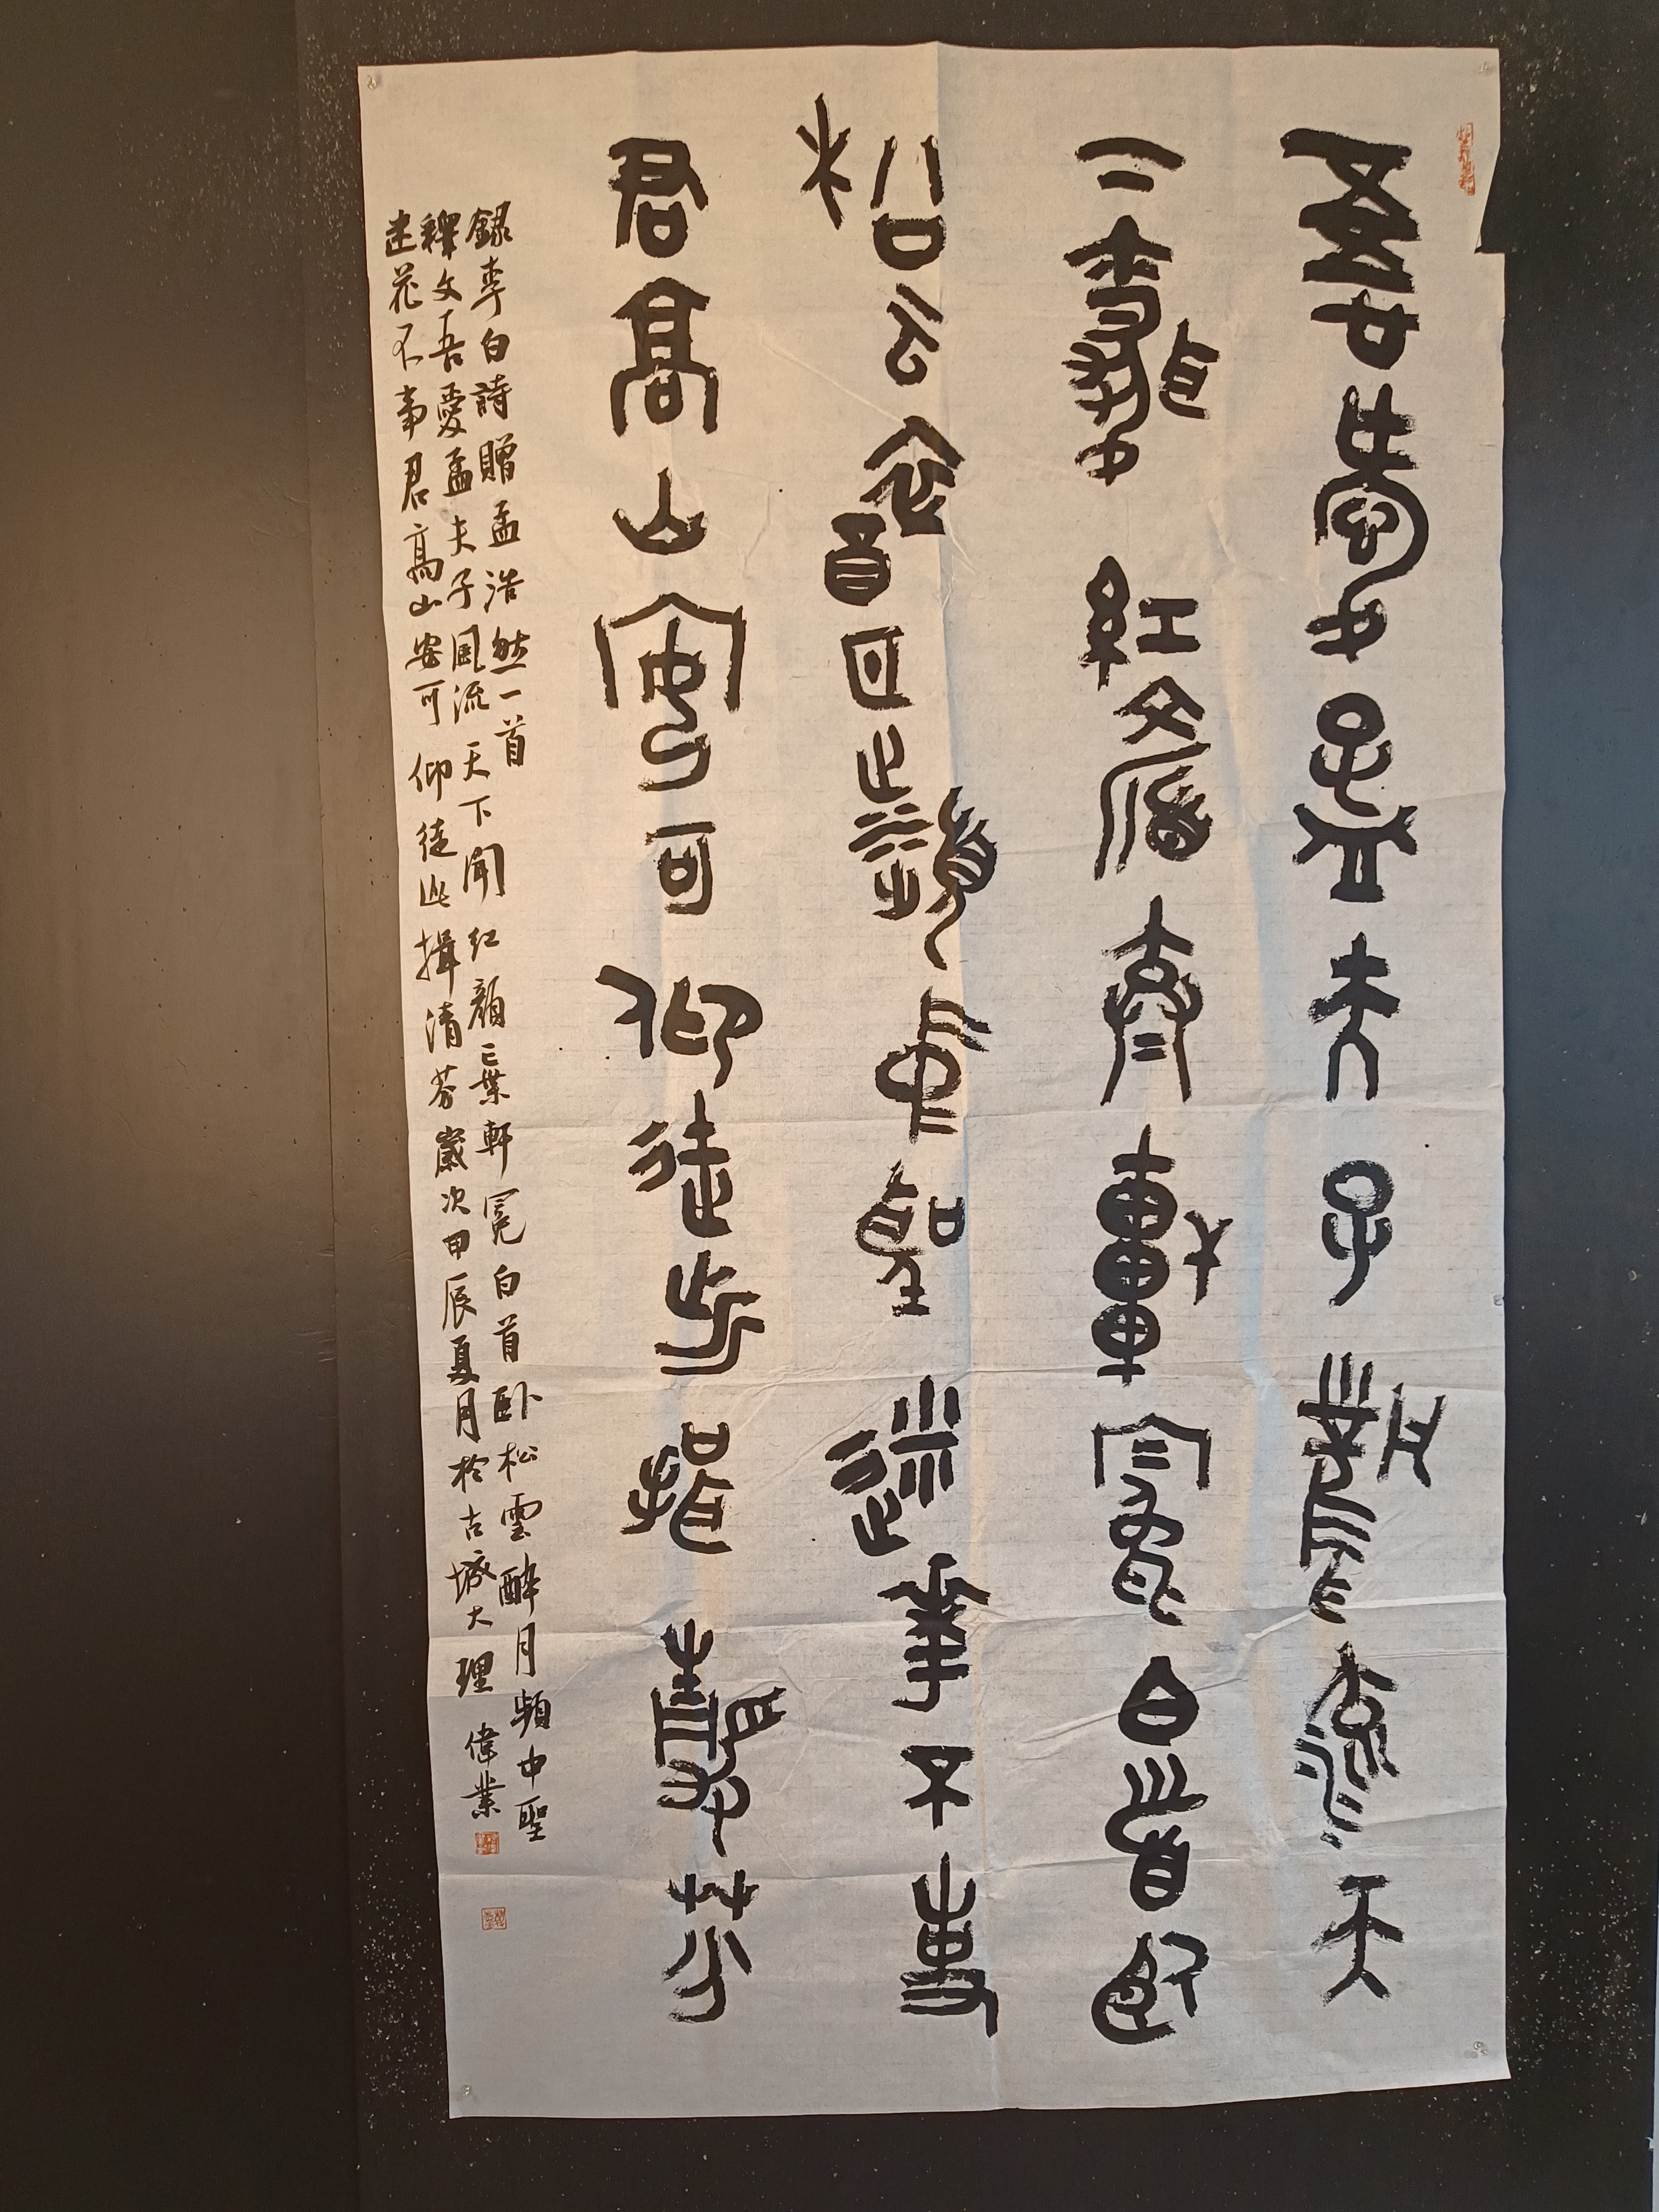 吾愛孟夫子風流天
下聞紅顏棄軒冕白首臥
松雲醉月頻中聖迷花不事
君高山安可仰徒此揖清芬
録李白詩贈孟浩然一首
釋文吾愛孟夫子風流天下聞紅顏棄軒冕白首卧松雲醉月頻中聖
迷花不事君高山安可仰徒此揖清芬歲次甲辰夏月於古城大理 偉業